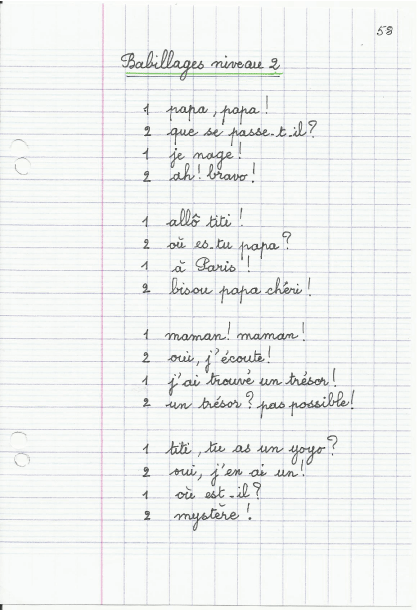 58
Babillages niveau 2
1 papa, papa !
2 que se passe-t-il ?
1 je nage !
2 ah ! bravo !
1 allô titi !
2 où es-tu papa ?
1 à Paris !
2 bisou papa chéri !
1 maman ! maman !
2 oui, j'écoute !
1 j'ai trouvé un trésor !
2 un trésor ? pas possible !
1 titi, tu as un yoyo ?
2 oui, j'en ai un !
1 où est-il ?
2 mystère !